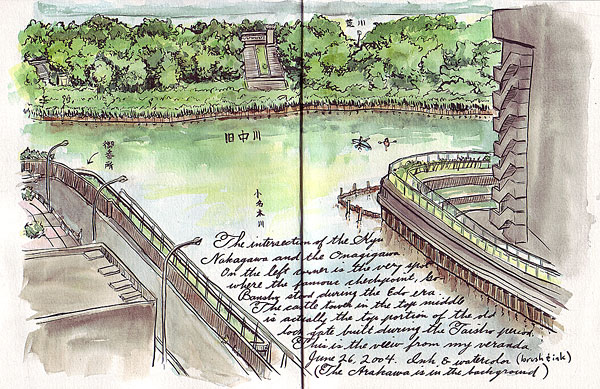 荒川
旧中川
御番所
小名木川
The intersection of the Kyu
Nakagawa and the Onagigawa
On the left corner is the very spot
where the famous checkpoint, Go-
Bansho stood during the Edo era
The castle tower in the top middle
is actually the top portion of the old
lock gate built during the Taisho period.
This is the view from my veranda
June 26, 2004. Ink & watercolor (brush & ink)
(The Arakawa is in the background)